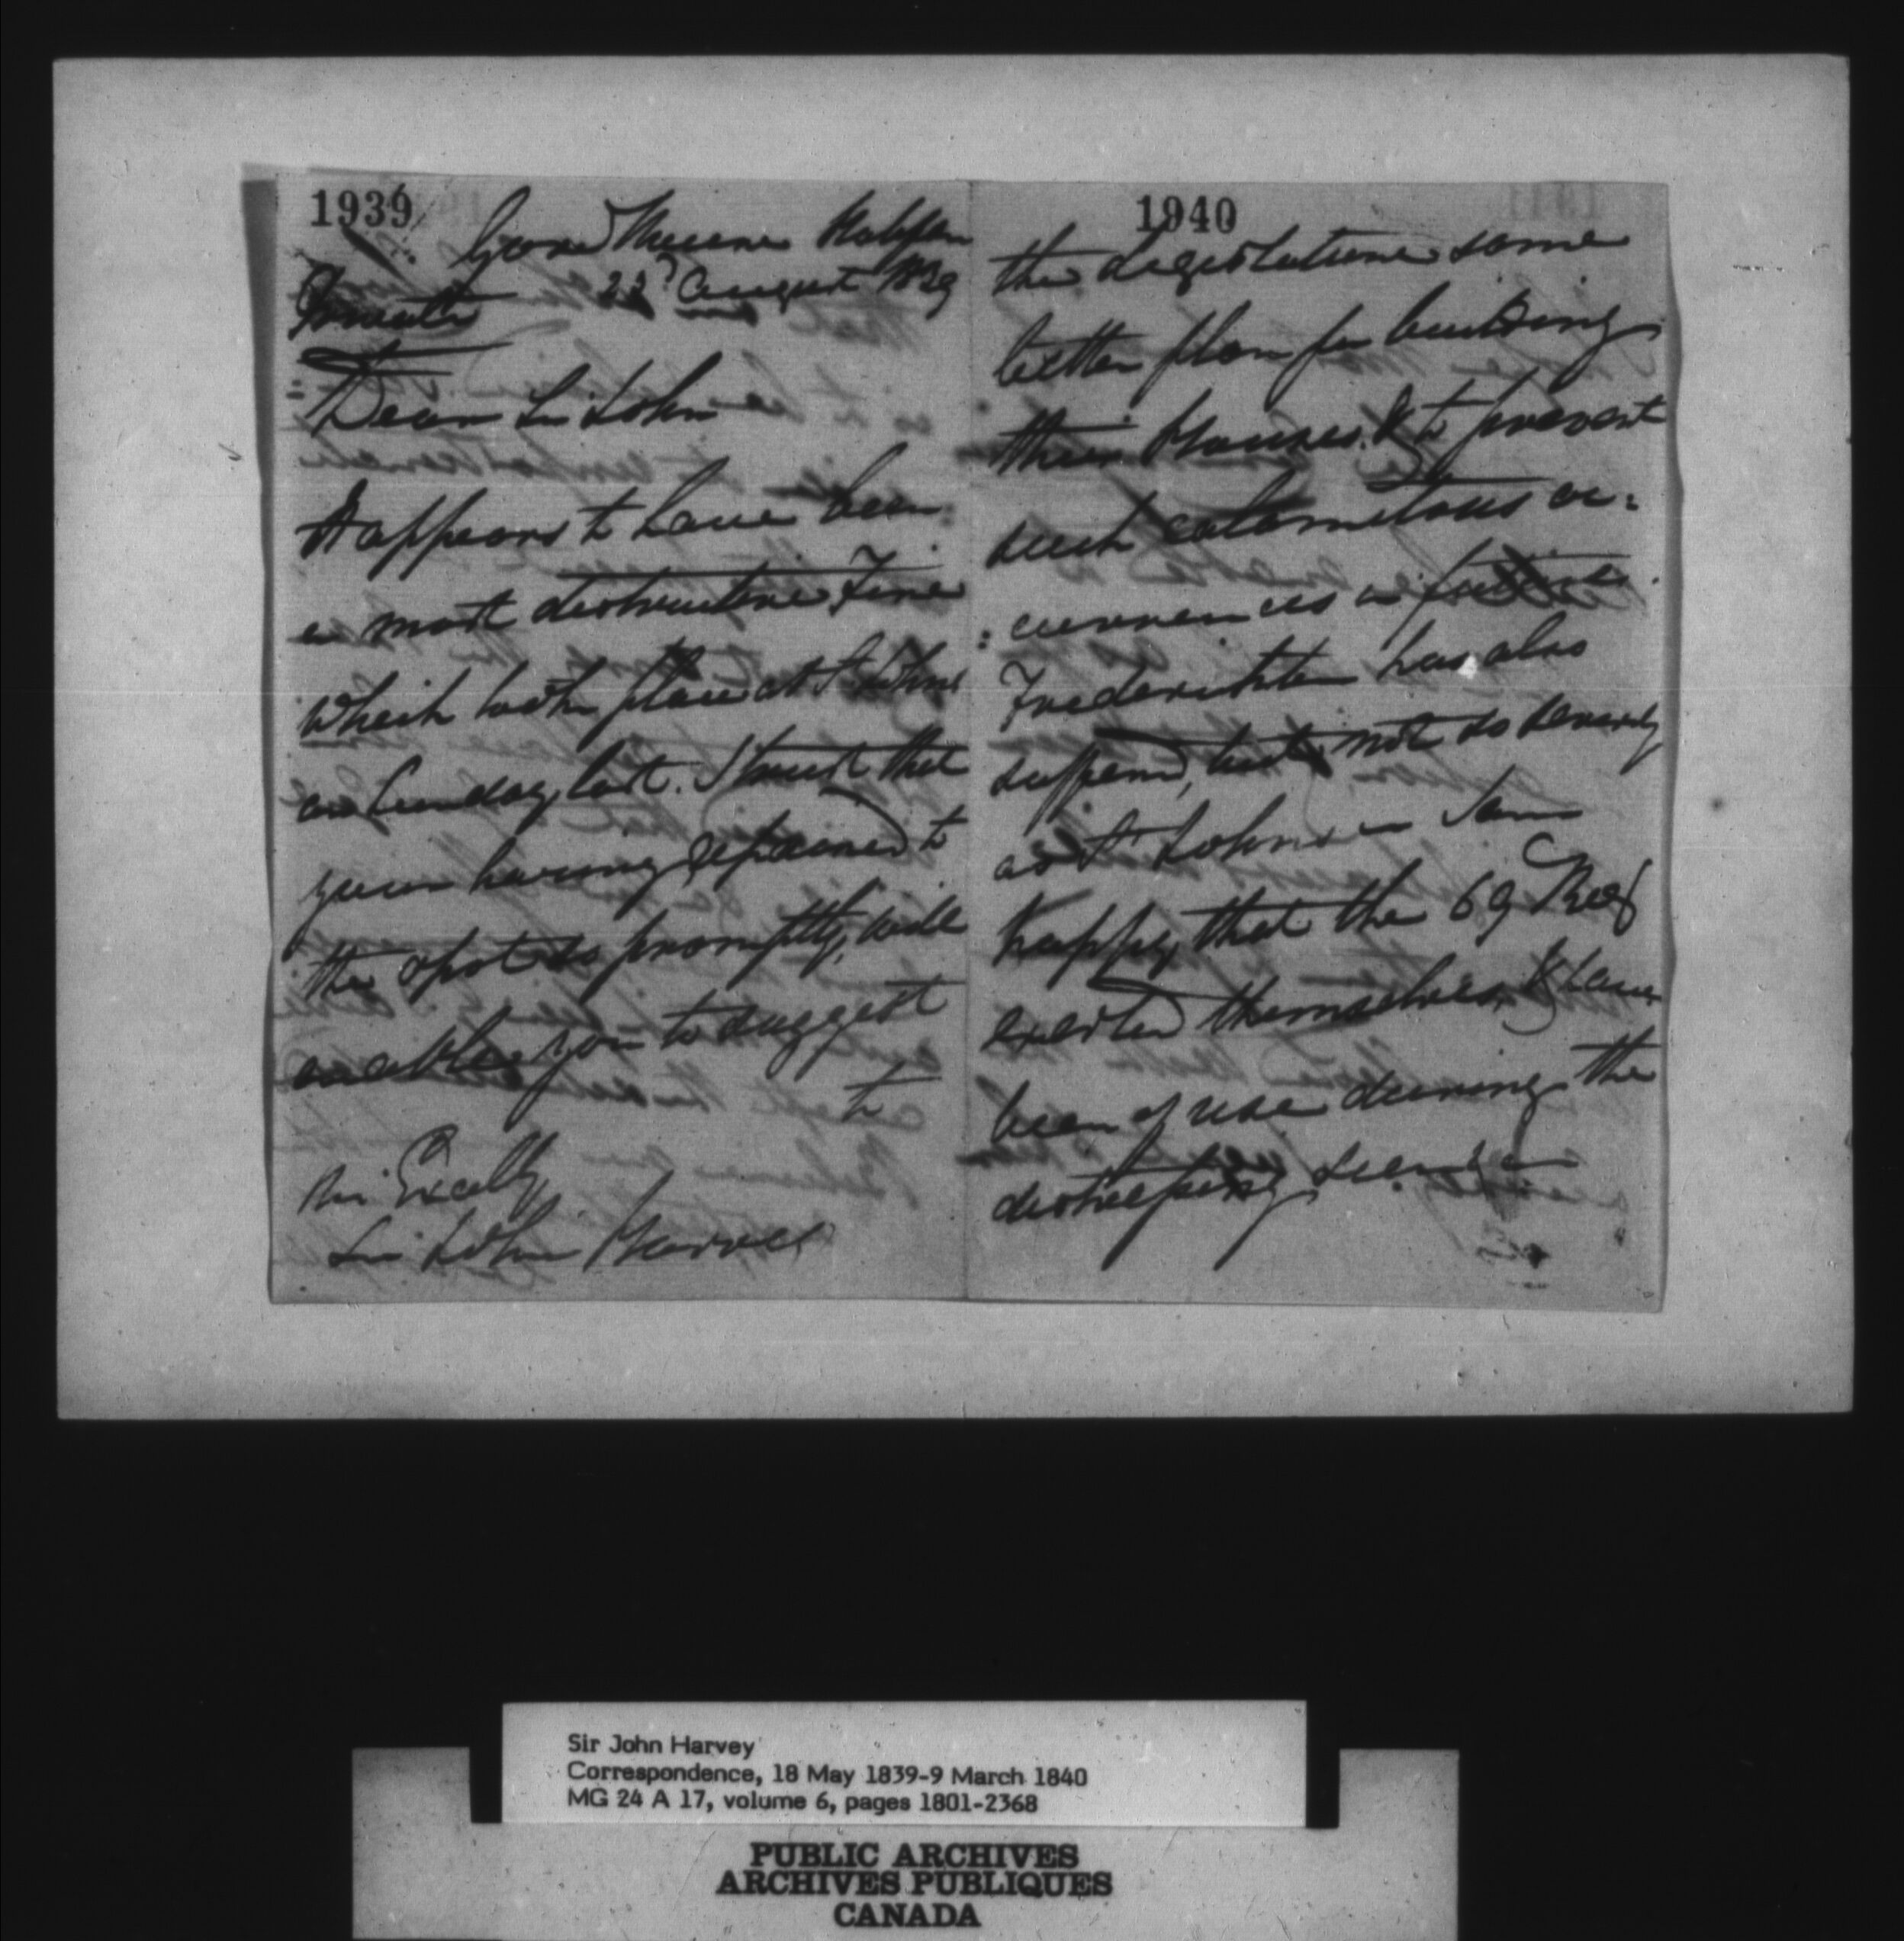 1939
Halifax
22d August 1839
Private
Dear Sir John
It appears to have been
a most destructive Fire
which took place at St Johns
on Sunday last. I trust that
your having repaired to
the spot so promptly, will
enable you to suggest
to
His Excelly
Sir John Harvey
1940
the Legislature some
better plan for building
their Houses & to prevent
such calamitous oc:
:currences in future.
Fredericton has also
suffered, but not so severely
as St Johns. I am
happy that the 69 Regt
exerted themselves, & have
been of use during the
distressing scene
Sir John Harvey
Correspondence, 18 May 1839-9 March 1840
MG 24 A 17, volume 6, pages 1801-2368
PUBLIC ARCHIVES
ARCHIVES PUBLIQUES
CANADA